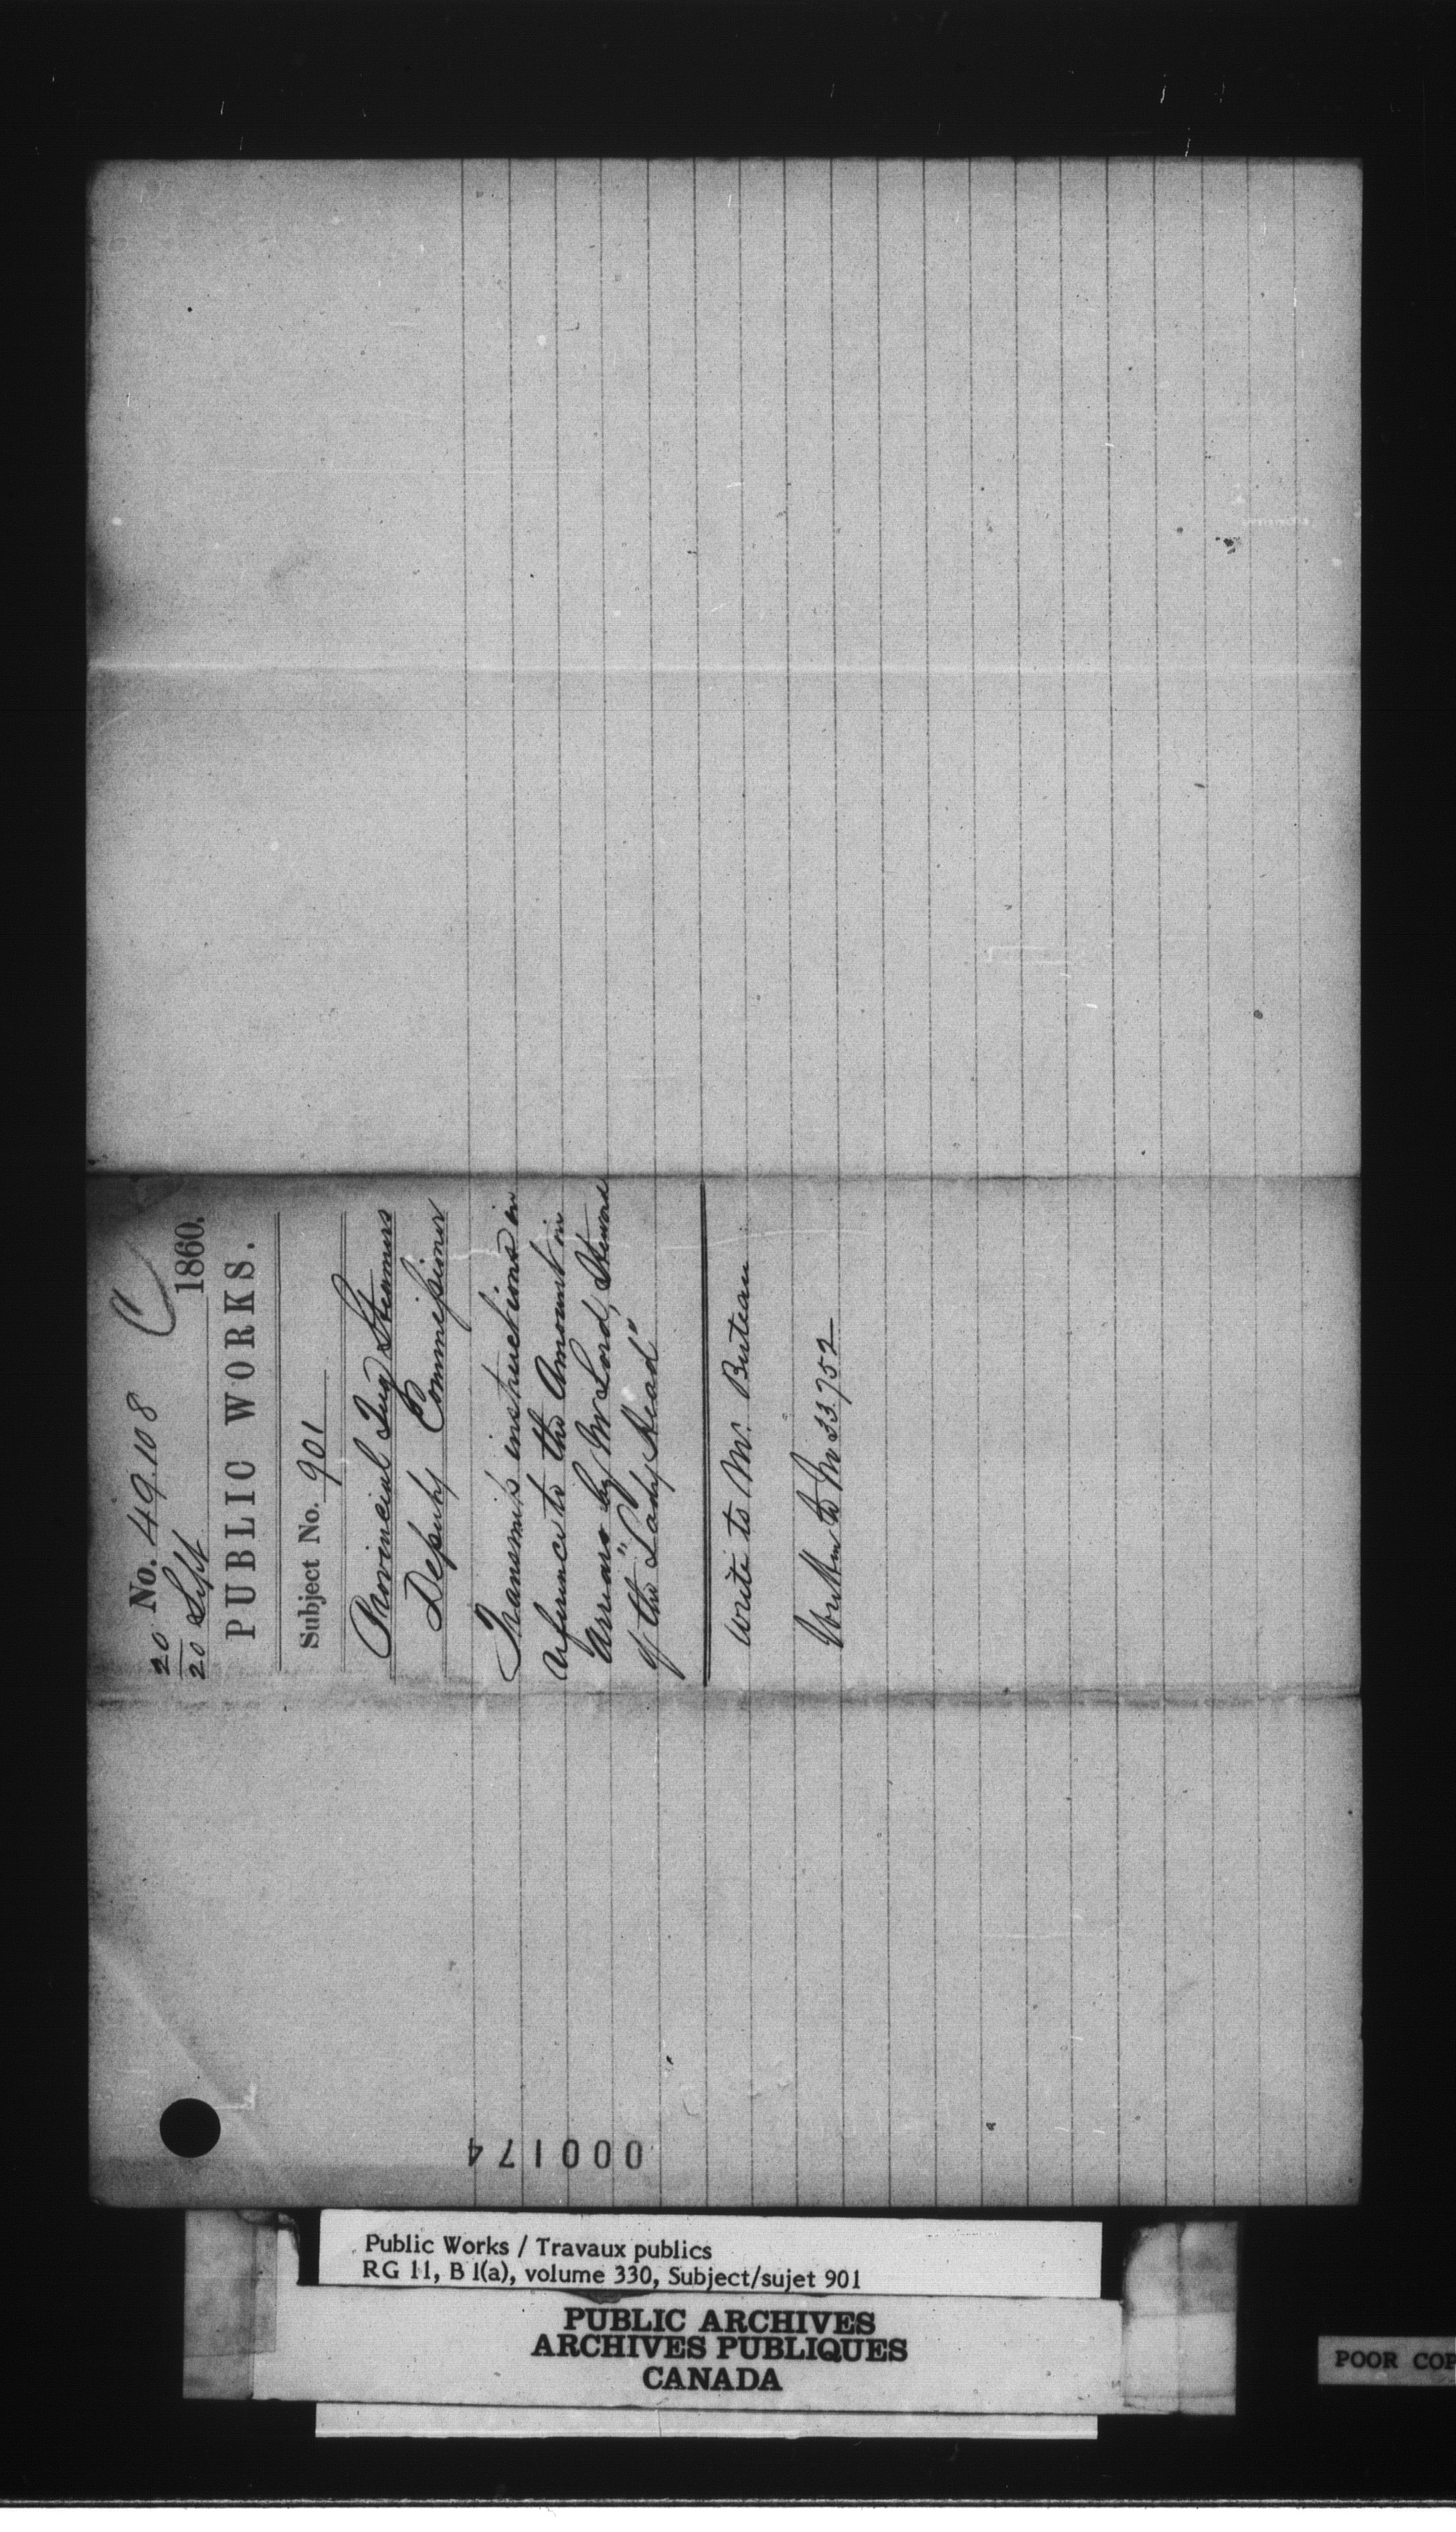 No. 49.108 C
20/20 Sept 1860.
PUBLIC WORKS.
Subject No. 901
Provincial Tug Steamers
Deputy Commissioner
Transmits instructions in
reference to the Amount in
Arrears by Mr Lord, Steward
of the "Lady Head"
write to Mr. Buteau
No 33752
000174
Public Works / Travaux publics
RG 11, B 1(a), volume 330, Subject/sujet 901
PUBLIC ARCHIVES
ARCHIVES PUBLIQUES
CANADA
POOR COP